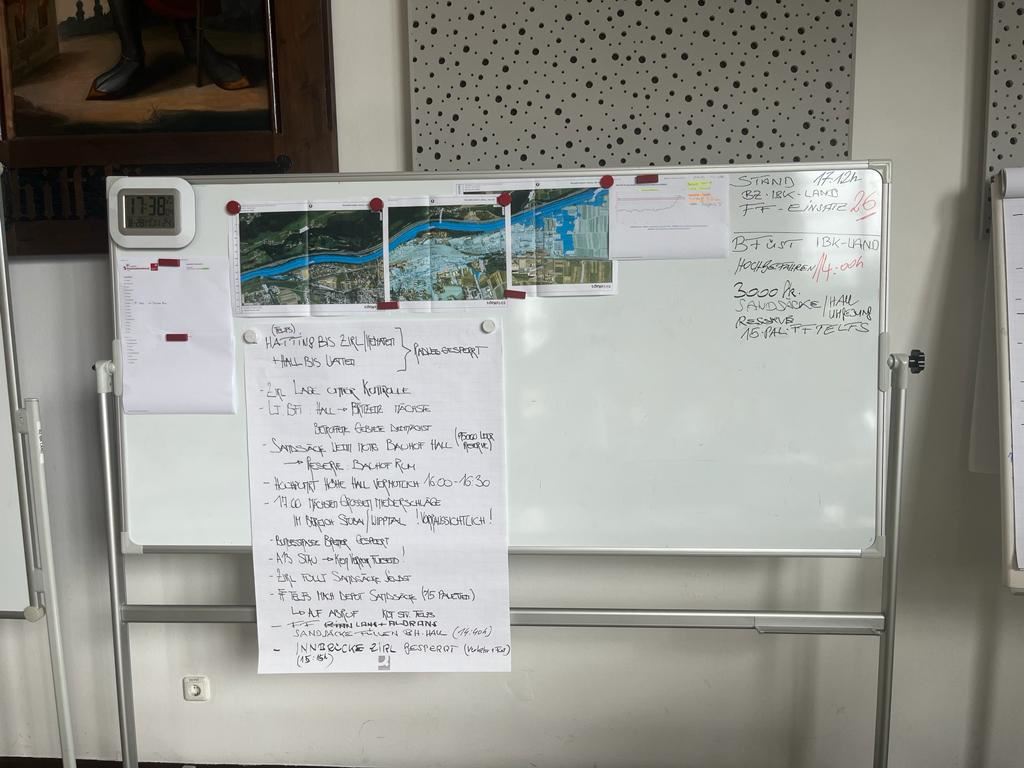 17:38
STAND 17:12h
BZ-IBK-LAND
FF-EINSATZ 26
BFÜST IBK-LAND
HOCHGEFAHREN/14:00h
3000 Stk.
SANDSÄCKE/HALL
UMGEBUNG
RESERVE
15-PAL. FF TELFS
(TELFS)
HATTING BIS ZIRL/KEMATEN
+ HALL BIS WATTENS
RADWEG GESPERRT
- ZIRL LAGE UNTER KONTROLLE
- LT. BFI HALL → NÄCHSTE
BETROFFENE GEBIETE DEMNÄCHST
- SANDSÄCKE BAUHOF HALL (15000 LEER
RESERVE)
→ RESERVE: BAUHOF RUM
- HOCHPUNKT HÖHE HALL VERMUTLICH 16:00-16:30
- 17:00 NÄCHSTEN GROSSEN NIEDERSCHLÄGE
IM BEREICH STUBAI/WIPPTAL ! VORRAUSSICHTLICH !
- BUNDESSTRASSE GESPERRT
- ZIRL FÜLLT SANDSÄCKE SELBST
- FF TELFS MACH DEPOT SANDSÄCKE (15 PALETTEN)
↳ AUF ABRUF KDT STV. TELFS
- FF + ALDRANS
SANDSÄCKE FÜLLEN BH. HALL (14:40h)
- INNBRÜCKE ZIRL GESPERRT
(15:15h)